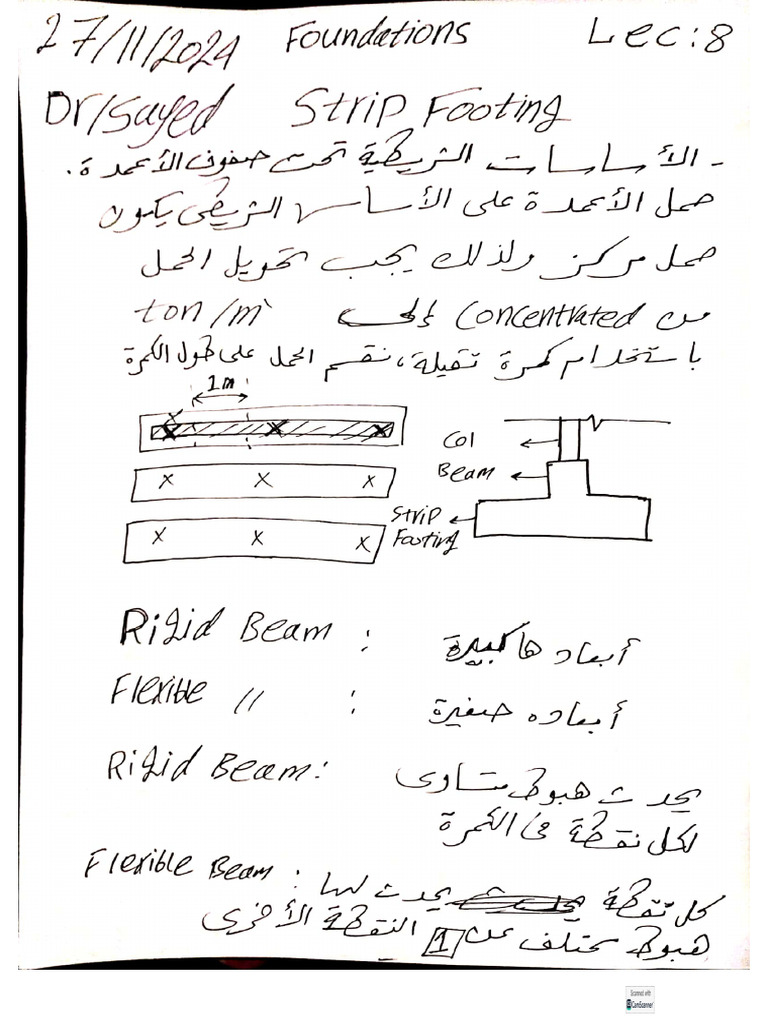 27/11/2024 Foundations Lec:8
Dr/Sayed Strip Footing
- الأساسات الشريطية تحت صفوف الأعمدة.
حمل الأعمدة على الأساس الشريطى يكون
حمل مركز ولذلك يجب تحويل الحمل
من Concentrated إلى ton/m`
باستخدام كمرة ثقيلة، نقسم الحمل على طول الكمرة
1m
Col
Beam
Strip
Footing
Rigid Beam : أبعادها كبيرة
Flexible // : أبعاده صغيرة
Rigid Beam: يحدث هبوط متساوى
لكل نقطة فى الكمرة
Flexible Beam : كل نقطة يحدث لها
هبوط مختلف عن النقطة الأخرى
1
Scanned with
CamScanner